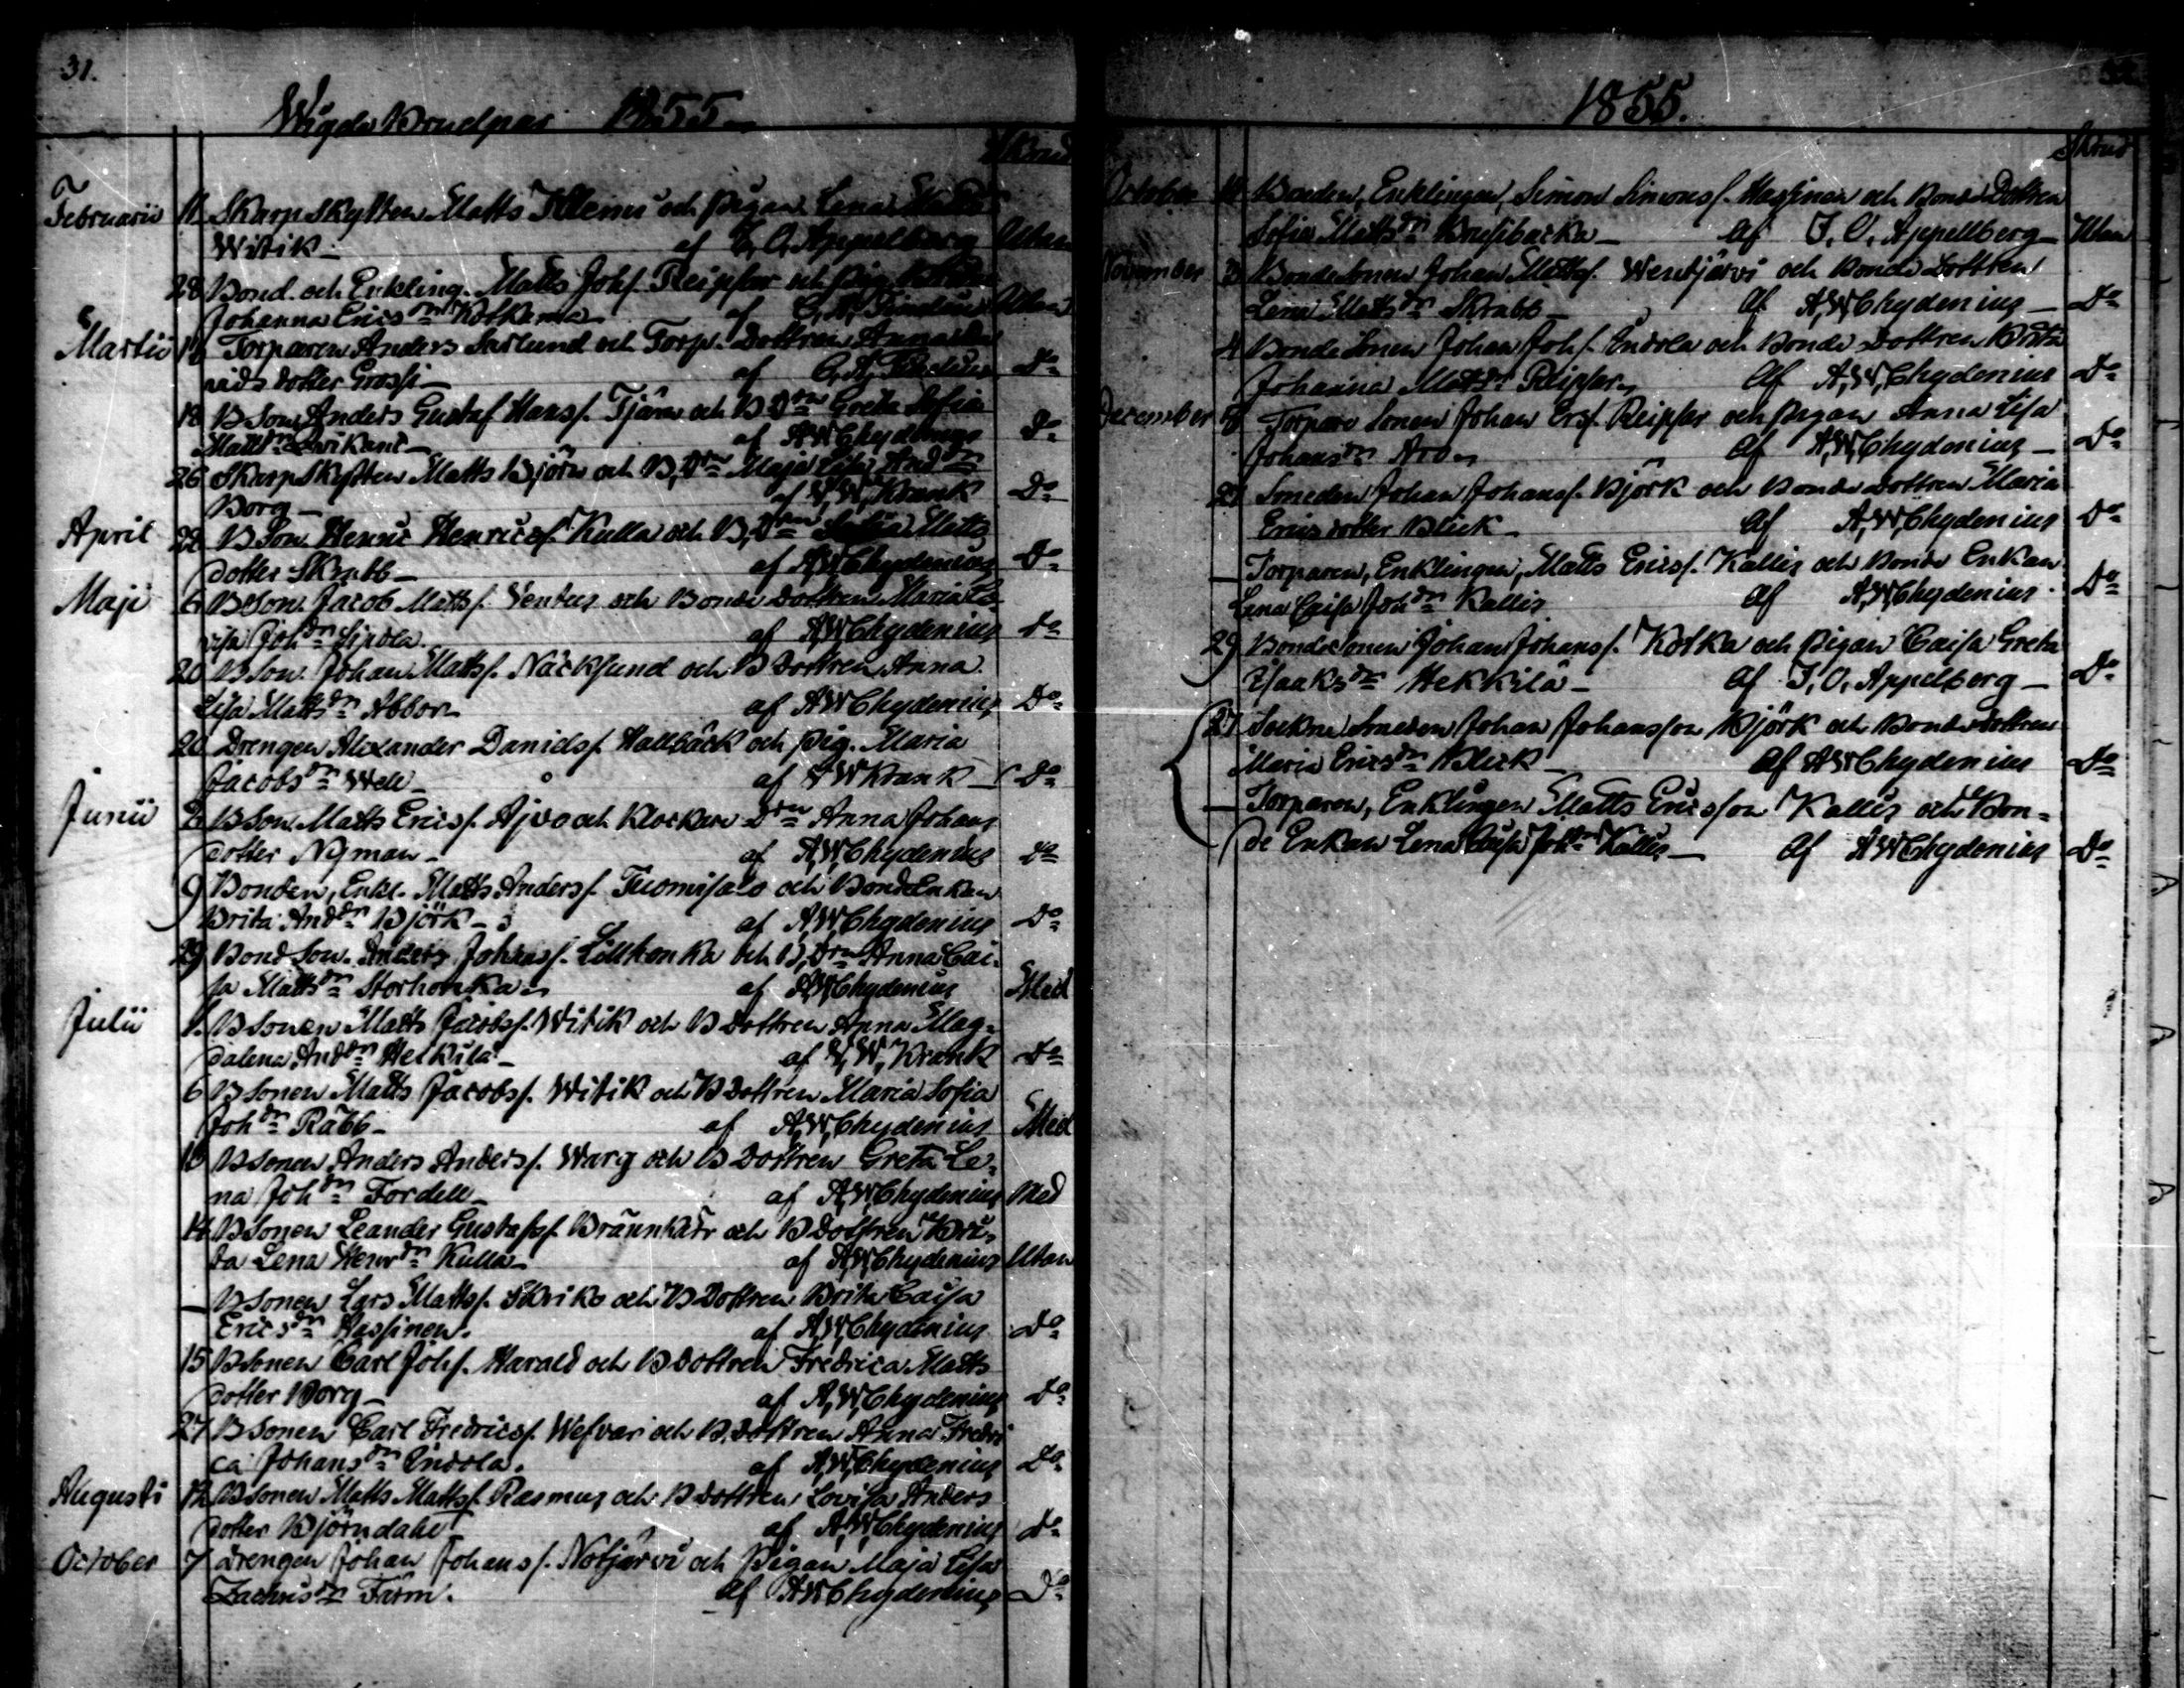 31.
Wigde Brudpar 1855.
Skrud
Februarii 11 Skarp Skytten Matts Klemi och pigan Lena
Witik. af Appelberg Utan
28 Bond. och Enkling. Matts Johs. Reipsar och pig.
Johanna Erics dr af Utan
Martii Torparen Anders Sarlund och Torp. Dottren Anna
dotter Grossi af Do
18 B Son. Anders Gustaf Hanss. Tjäru och B Dtr Greta Sofia
Matts dr af AWChydenius Do
26 Skarp Skytten Matts Björn och B, Dtr Maja Lisa And dr
Borg af Krank Do
April 22 B Son. Henric Henricss. Kulla och B, Dtr Sofia Matts
dotter Skrabb af AWChydenius Do
Maji 6 B Son. Jacob Mattss. Ventus och Bonde dottren Maria Ca
isa Joh dr Sipola. af AWChydenius Do
20 B Son. Johan Mattss. Näcksund och B Dottren Anna
Lisa Matts dr Abbor af AWChydenius Do
26 Drengen Alexander Daniels. Hallbäck och pig. Maria
Jacobs dr Well af Krank Do
Junii 2 B Son. Matts Erics. Ajvo och Klockare Dtr Anna Johans
dotter Nyman af AWChydenius Do
9 Bonden, Enkl. Matts Anderss. Tuomisalo och Bonde Enkan
Brita And dr Björk af AWChydenius Do
29 Bond Son. Anders Johanss. Lillhonka och B, Dtr Anna Cai-
sa Matts dr Storhonka af AWChydenius Med
Julii 1. B Sonen Matts Jacobss. Witik och B dottren Anna Mag-
dalena And dr Heikilä af Krank Do
6 B Sonen Matts Jacobss. Witik och B Dottren Maria Sofia
Joh dr Rabb af AWChydenius Med
B Sonen Anders Anderss. Warg och B Dottren Greta Le-
na Joh dr Fordell af AWChydenius Med
14 B Sonen Leander Gustafss. Brännkärr och B dottren Bri-
ta Lena Henr dr Kulla af AWChydenius Utan
— B Sonen Lars Mattss. Skriko och B Dottren Brita Caisa
Erics dr Hassinen. af AWChydenius Do
15 B Sonen Carl Johs. Harald och B dottren Fredrica Matts
dotter Borg af AWChydenius Do
27 B Sonen Carl Fredricss. Wefvar och B. dottren Anna Fredri
ca Johans dr Indola. af AWChydenius Do
Augusti 12 B Sonen Matts Mattss. Rasmus och B dottren Lovisa Anders
dotter Björndahl af AWChydenius Do
October 7 Drengen Johan Johanss. Notjärvi och pigan Maja Lisa
Zachris dr Färm. af AWChydenius Do
1855.
Skrud
October Bonden, Enklingen, Simon Simonss. Hassinen och Bonde Dottren
Sofia Matts dr Brusibacka af J. O. Appelberg Utan
November 3 Bonde Sonen Johan Mattss. Wentjärvi och Bonde Dottren
Lena Matts dr Skrabb Af AWChydenius Do
4 Bonde Sonen Johan Johs. Indola och Bonde Dottren Brita
Johanna Matts dr Reipsar Af AWChydenius Do
December 8 Torpare Sonen Johan Ers. Reipsar och pigan Anna Lisa
Johans dr Arvo Af AWChydenius Do
27 Smeden Johan Johanss. Björk och Bonde Dottren Maria
Erics dotter Bleck Af AWChydenius Do
— Torparen, Enklingen, Matts Ericss. Kallis och Bonde Enkan
Lena Caisa Joh dr Kallis Af AWChydenius Do
29 Bonde Sonen Johan Johanss. Kotka och pigan Caisa Greta
Isaaks dr Hekkilä Af J. O. Appelberg Do
27 Sockne Smeden Johan Johansson Björk och Bonde dottren
Maria Erics dr Bleck Af AWChydenius Do
— Torparen, Enklingen Matts Ericsson Kallis och Bon-
de Enkan Lena Caisa Joh dr Kallis Af AWChydenius Do